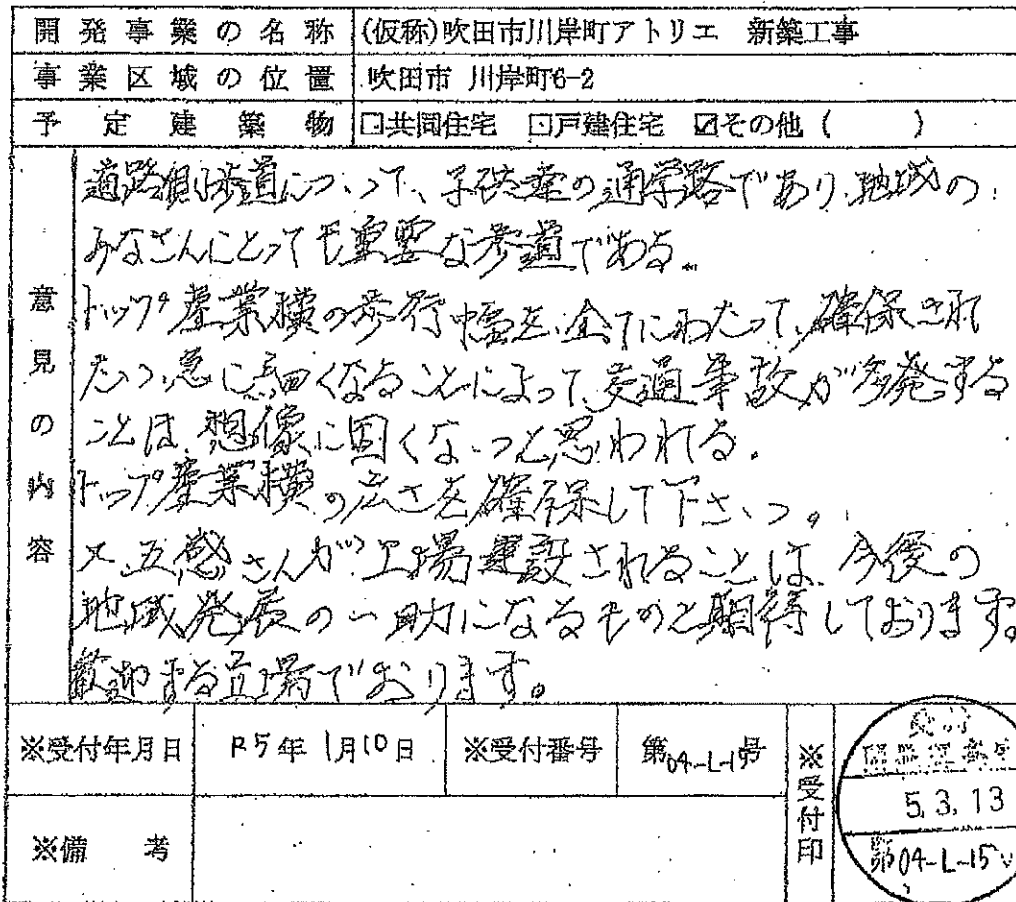 開発事業の名称 (仮称)吹田市川岸町アトリエ 新築工事
事業区域の位置 吹田市 川岸町6-2
予定建築物 □共同住宅 □戸建住宅 ☑その他( )
意見の内容
道路側歩道について、子供達の通学路であり、地域の
みなさんにとっても重要な歩道である。
トップ産業横の歩行幅を、全てにわたって、確保され
たい、急に細くなることによって、交通事故が多発する
ことは、想像に固くないと思われる。
トップ産業横の広さを確保して下さい。
又、五感さんが工場建設されることは、今後の
地域発展の一助になるものと期待しております。
歓迎する立場でおります。
※受付年月日 R5年 1月10日 ※受付番号 第04-L-15号 ※受付印
受付
5.3.13
第04-L-15
※備考